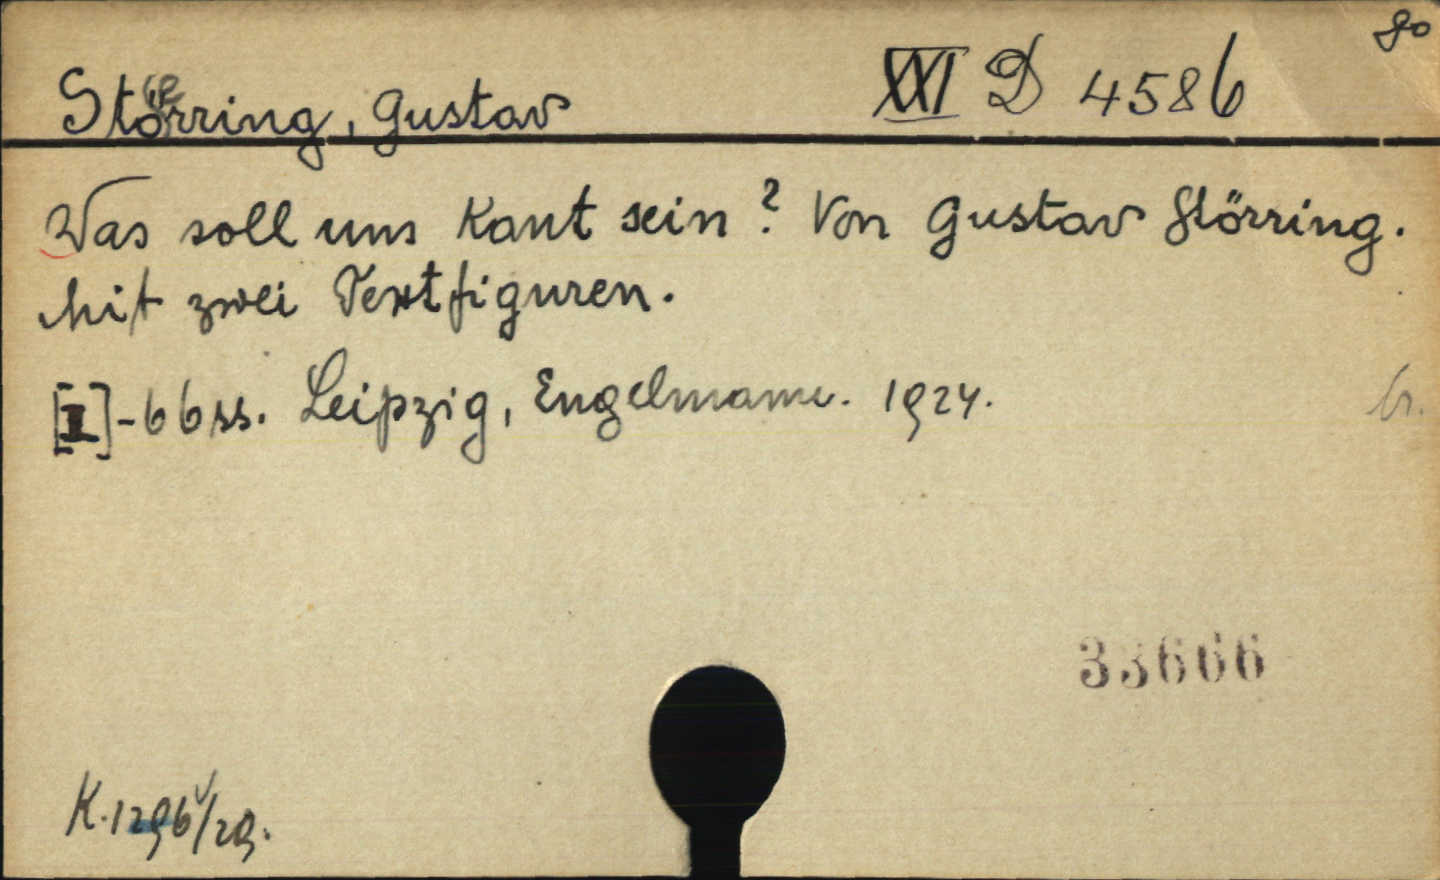 80
Störring, Gustav XXI D 4586
Was soll uns Kant sein? Von Gustav Störring.
Mit zwei Textfiguren.
[I]-66 ss. Leipzig, Engelmann. 1924. br.
33666
K. 1296/29.